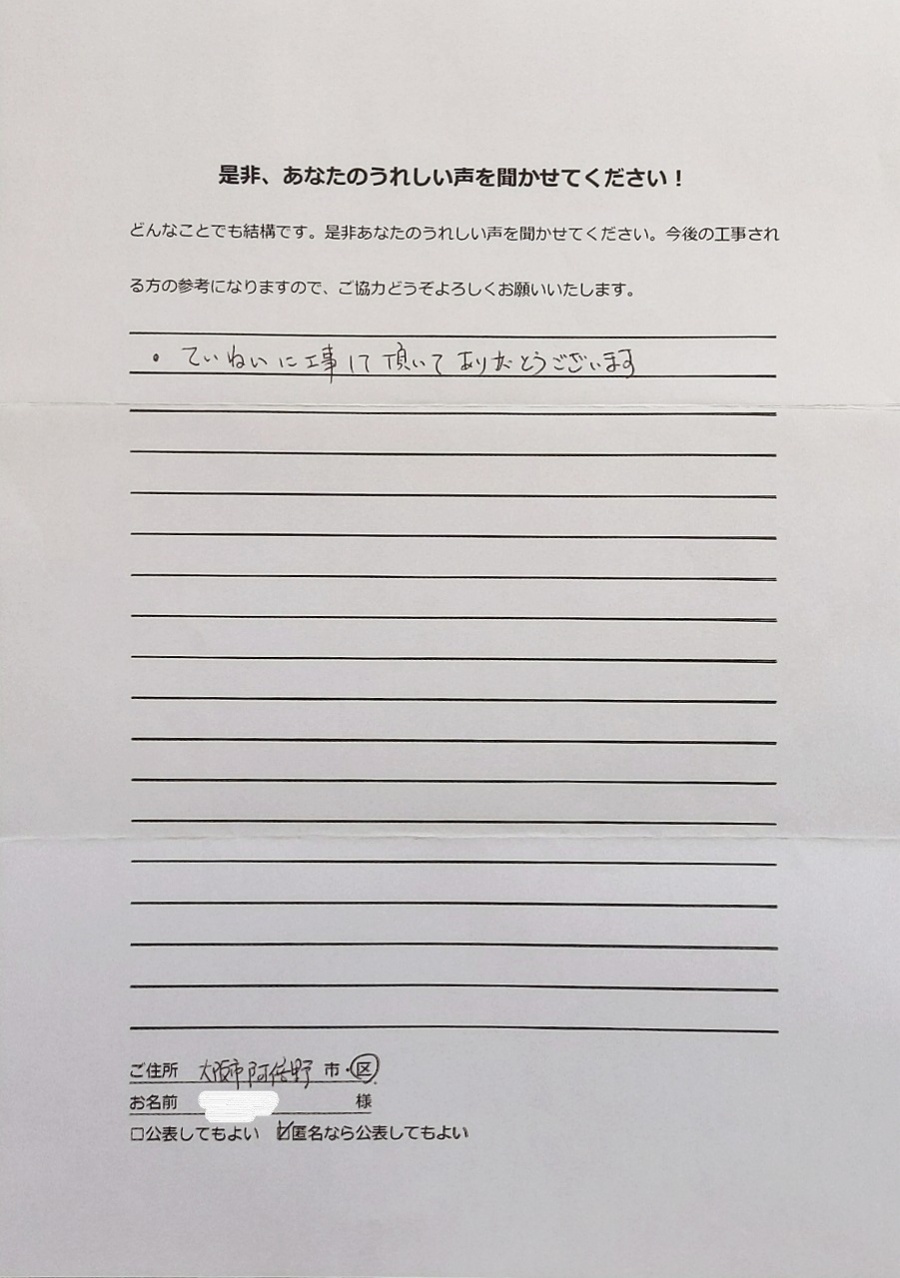 是非、あなたのうれしい声を聞かせてください！
どんなことでも結構です。是非あなたのうれしい声を聞かせてください。今後の工事され
る方の参考になりますので、ご協力どうぞよろしくお願いいたします。
・ていねいに工事して頂いてありがとうございます
ご住所 大阪市阿倍野 市・区
お名前 様
□公表してもよい ☑匿名なら公表してもよい